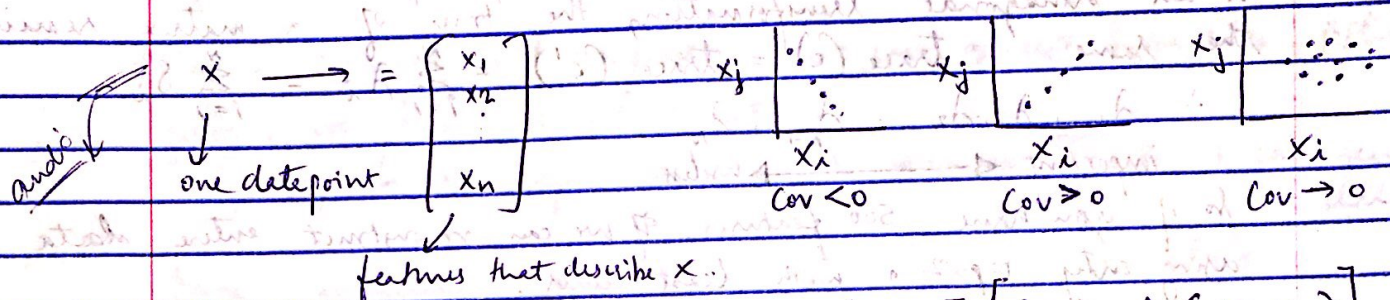 audio
X → = [ x1
x2
⋮
xn ]
one datepoint
features that describe X.
xj
xi
Cov < 0
xj
xi
Cov > 0
xj
xi
Cov → 0